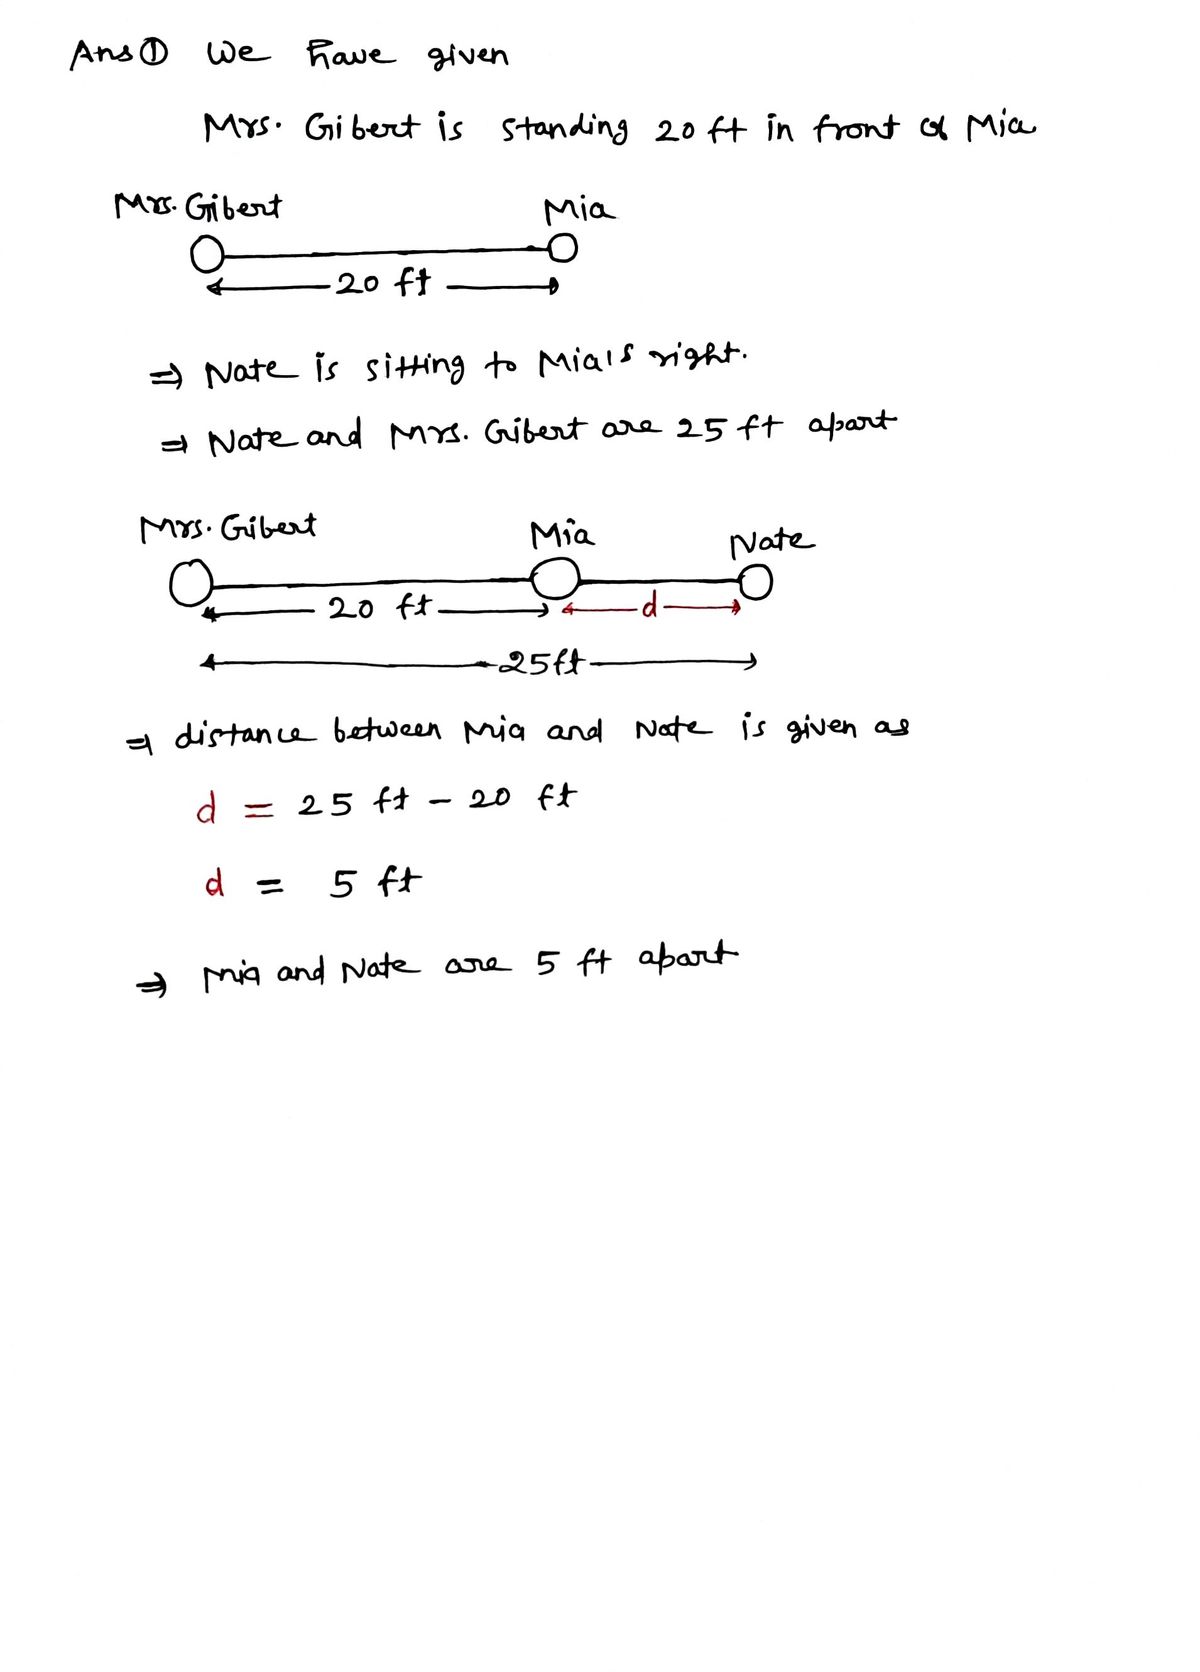 Ans ① We have given
Mrs. Gibert is standing 20 ft in front of Mia
Mrs. Gibert Mia
20 ft
⇒ Nate is sitting to Mia's right.
⇒ Nate and Mrs. Gibert are 25 ft apart
Mrs. Gibert Mia Nate
20 ft d
25 ft
⇒ distance between Mia and Nate is given as
d = 25 ft - 20 ft
d = 5 ft
⇒ Mia and Nate are 5 ft apart